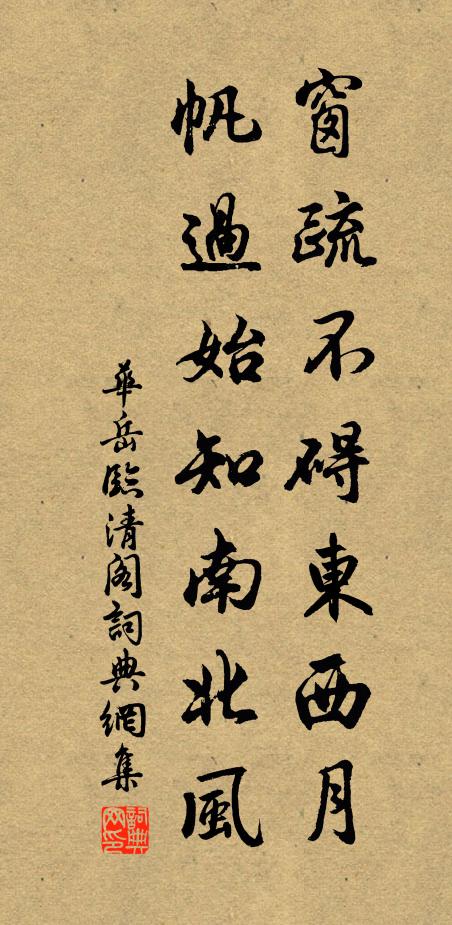 窗疏不碍東西月
帆過始知南北風
華岳臨清阁詞典網集
詞典网印